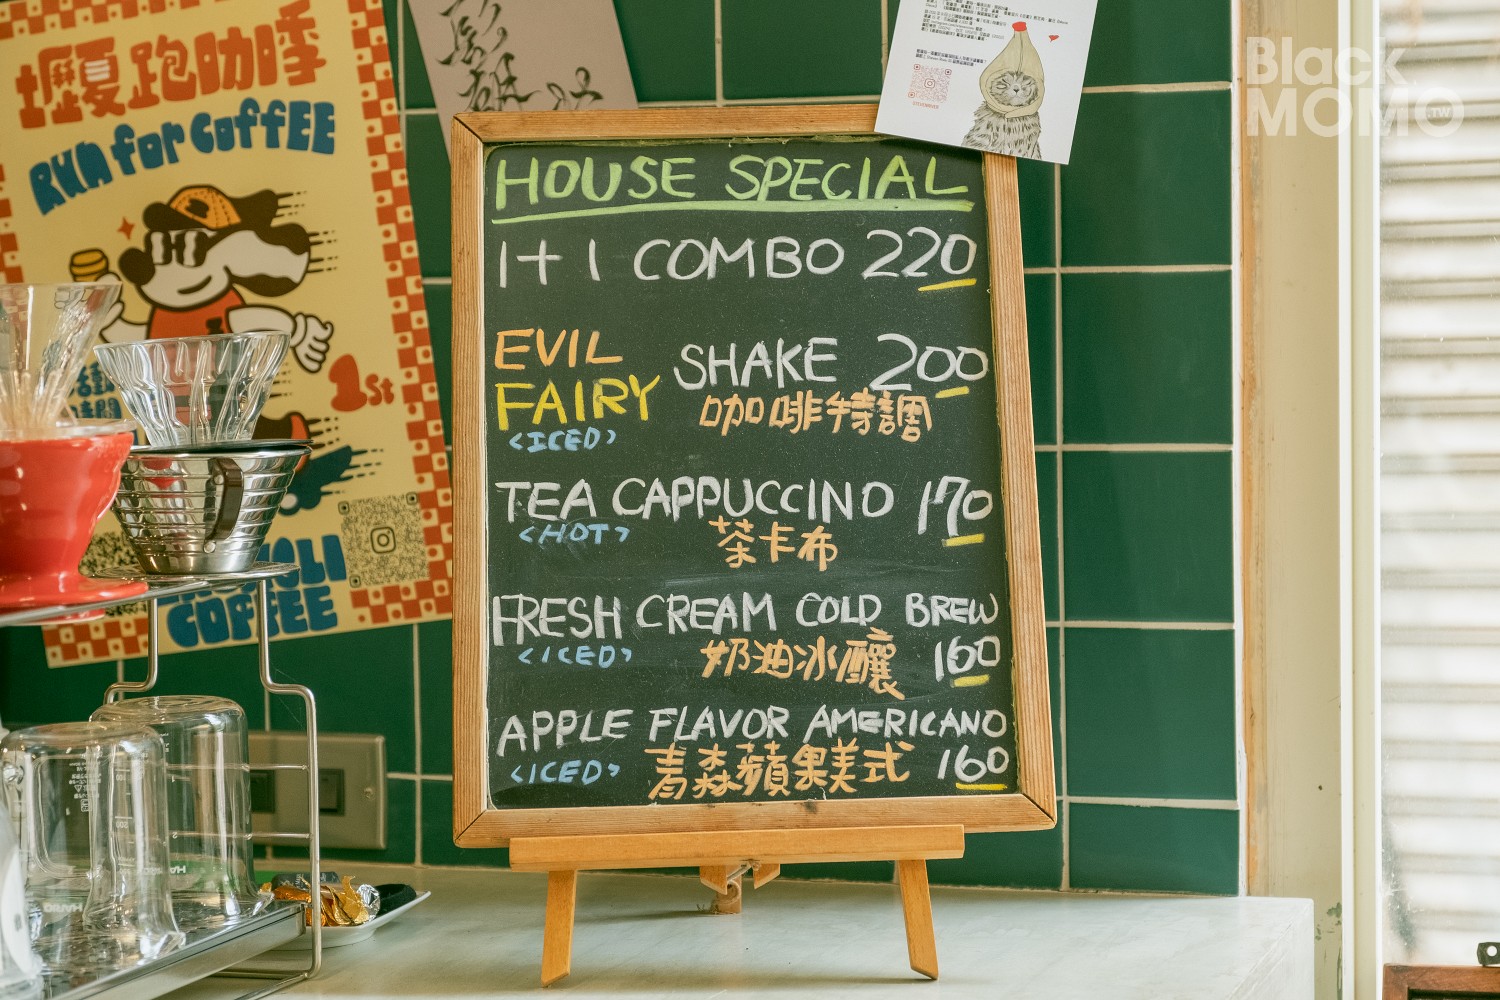 壢夏跑咖季
RUN for COFFEE
1St
COFFEE
Black
MOMO.TW
HOUSE SPECIAL
1+1 COMBO 220
EVIL
FAIRY SHAKE 200
<ICED> 咖啡特調
TEA CAPPUCCINO 170
<HOT> 茶卡布
FRESH CREAM COLD BREW
<ICED> 奶油冰釀 160
APPLE FLAVOR AMERICANO
<ICED> 青森蘋果美式 160
HARIO